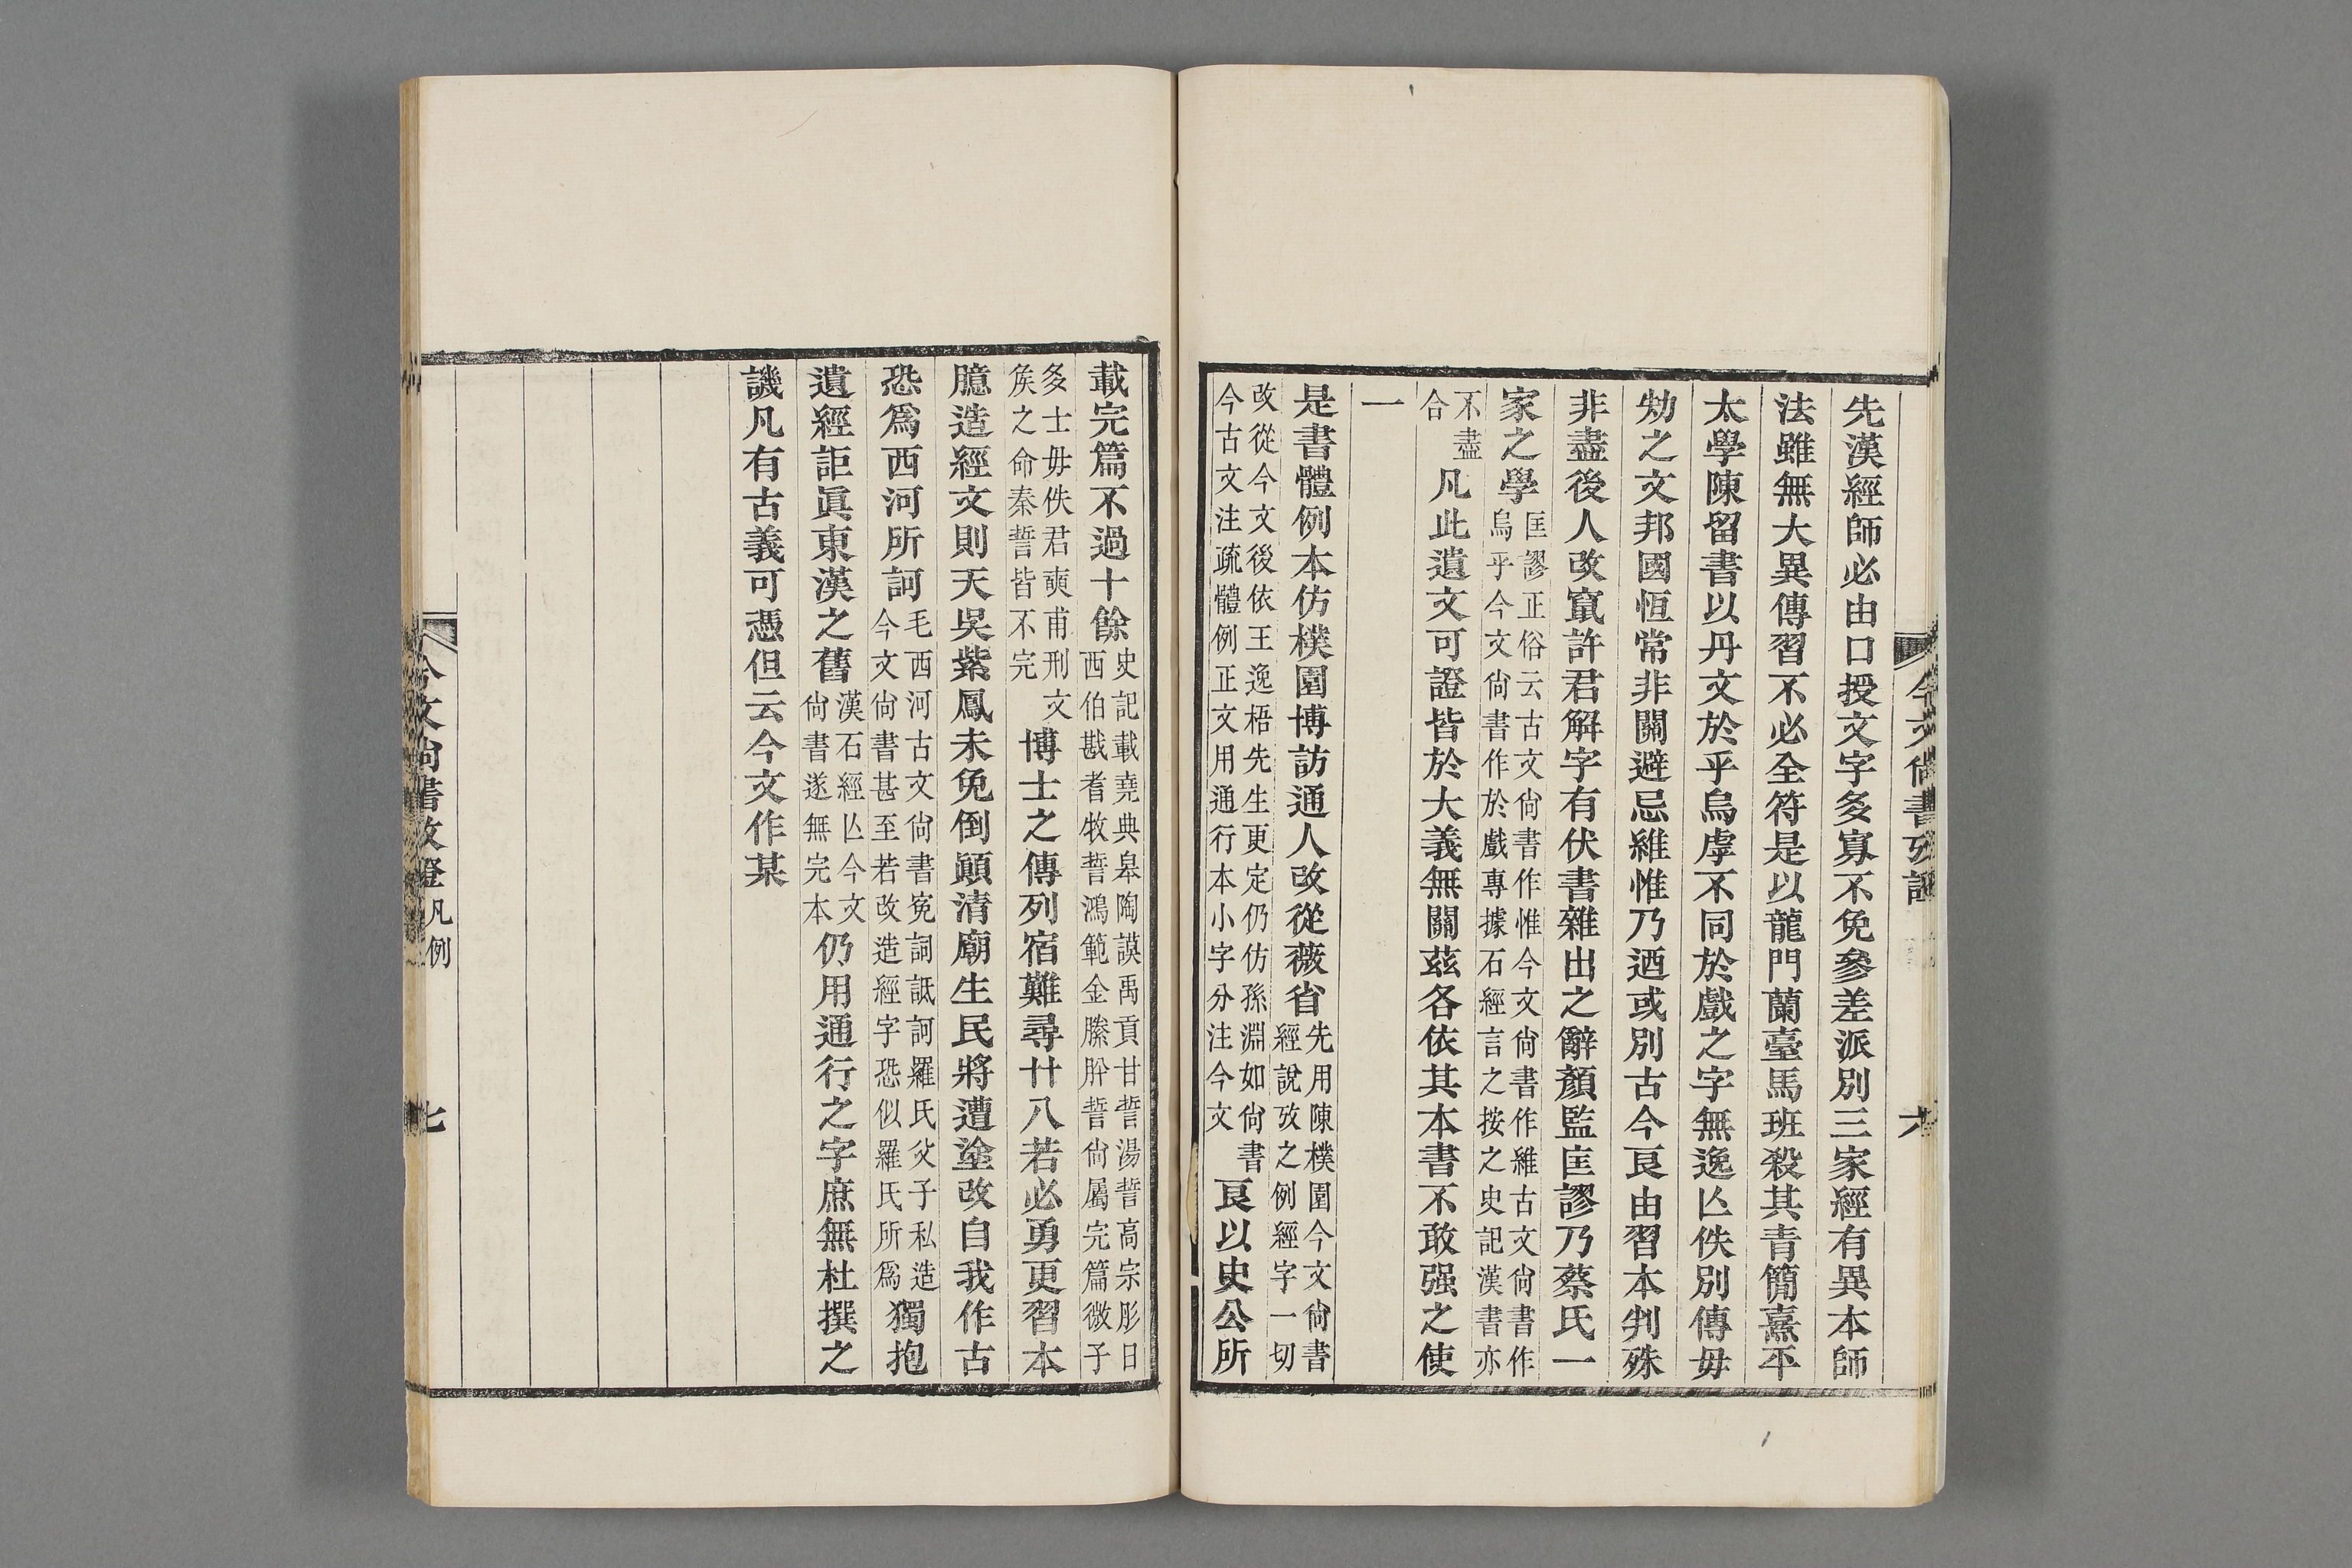 先漢經師必由口授文字多寡不免參差派別三家經有異本師
法雖無大異傳習不必全符是以龍門蘭臺馬班殺其青簡熹平
太學陳留書以丹文於乎烏虖不同於戲之字無逸亾佚別傳毋
劮之文邦國恒常非關避忌維惟乃迺或別古今良由習本判殊
非盡後人改竄許君解字有伏書雜出之辭顏監匡謬乃蔡氏一
家之學
匡謬正俗云古文尙書作惟今文尙書作維古文尙書作
烏乎今文尙書作於戲專據石經言之按之史記漢書亦
不盡
合
凡此遺文可證皆於大義無關茲各依其本書不敢强之使
一
是書體例本仿樸園博訪通人改從薇省
先用陳樸園今文尙書
經說攷之例經字一切
改從今文後依王逸梧先生更定仍仿孫淵如尙書
今古文注疏體例正文用通行本小字分注今文
良以史公所
載完篇不過十餘
史記載堯典皋陶謨禹貢甘誓湯誓高宗肜日
西伯戡耆牧誓鴻範金縢肸誓尙屬完篇微子
多士毋佚君奭甫刑文
矦之命秦誓皆不完
博士之傳列宿難尋廿八若必勇更習本
臆造經文則天吳紫鳳未免倒顚清廟生民將遭塗改自我作古
恐爲西河所訶
毛西河古文尙書寃詞詆訶羅氏父子私造
今文尙書甚至若改造經字恐似羅氏所爲
獨抱
遺經詎眞東漢之舊
漢石經亾今文
尙書遂無完本
仍用通行之字庶無杜撰之
譏凡有古義可憑但云今文作某
今文尙書攷證
六
今文尙書攷證
凡例
七